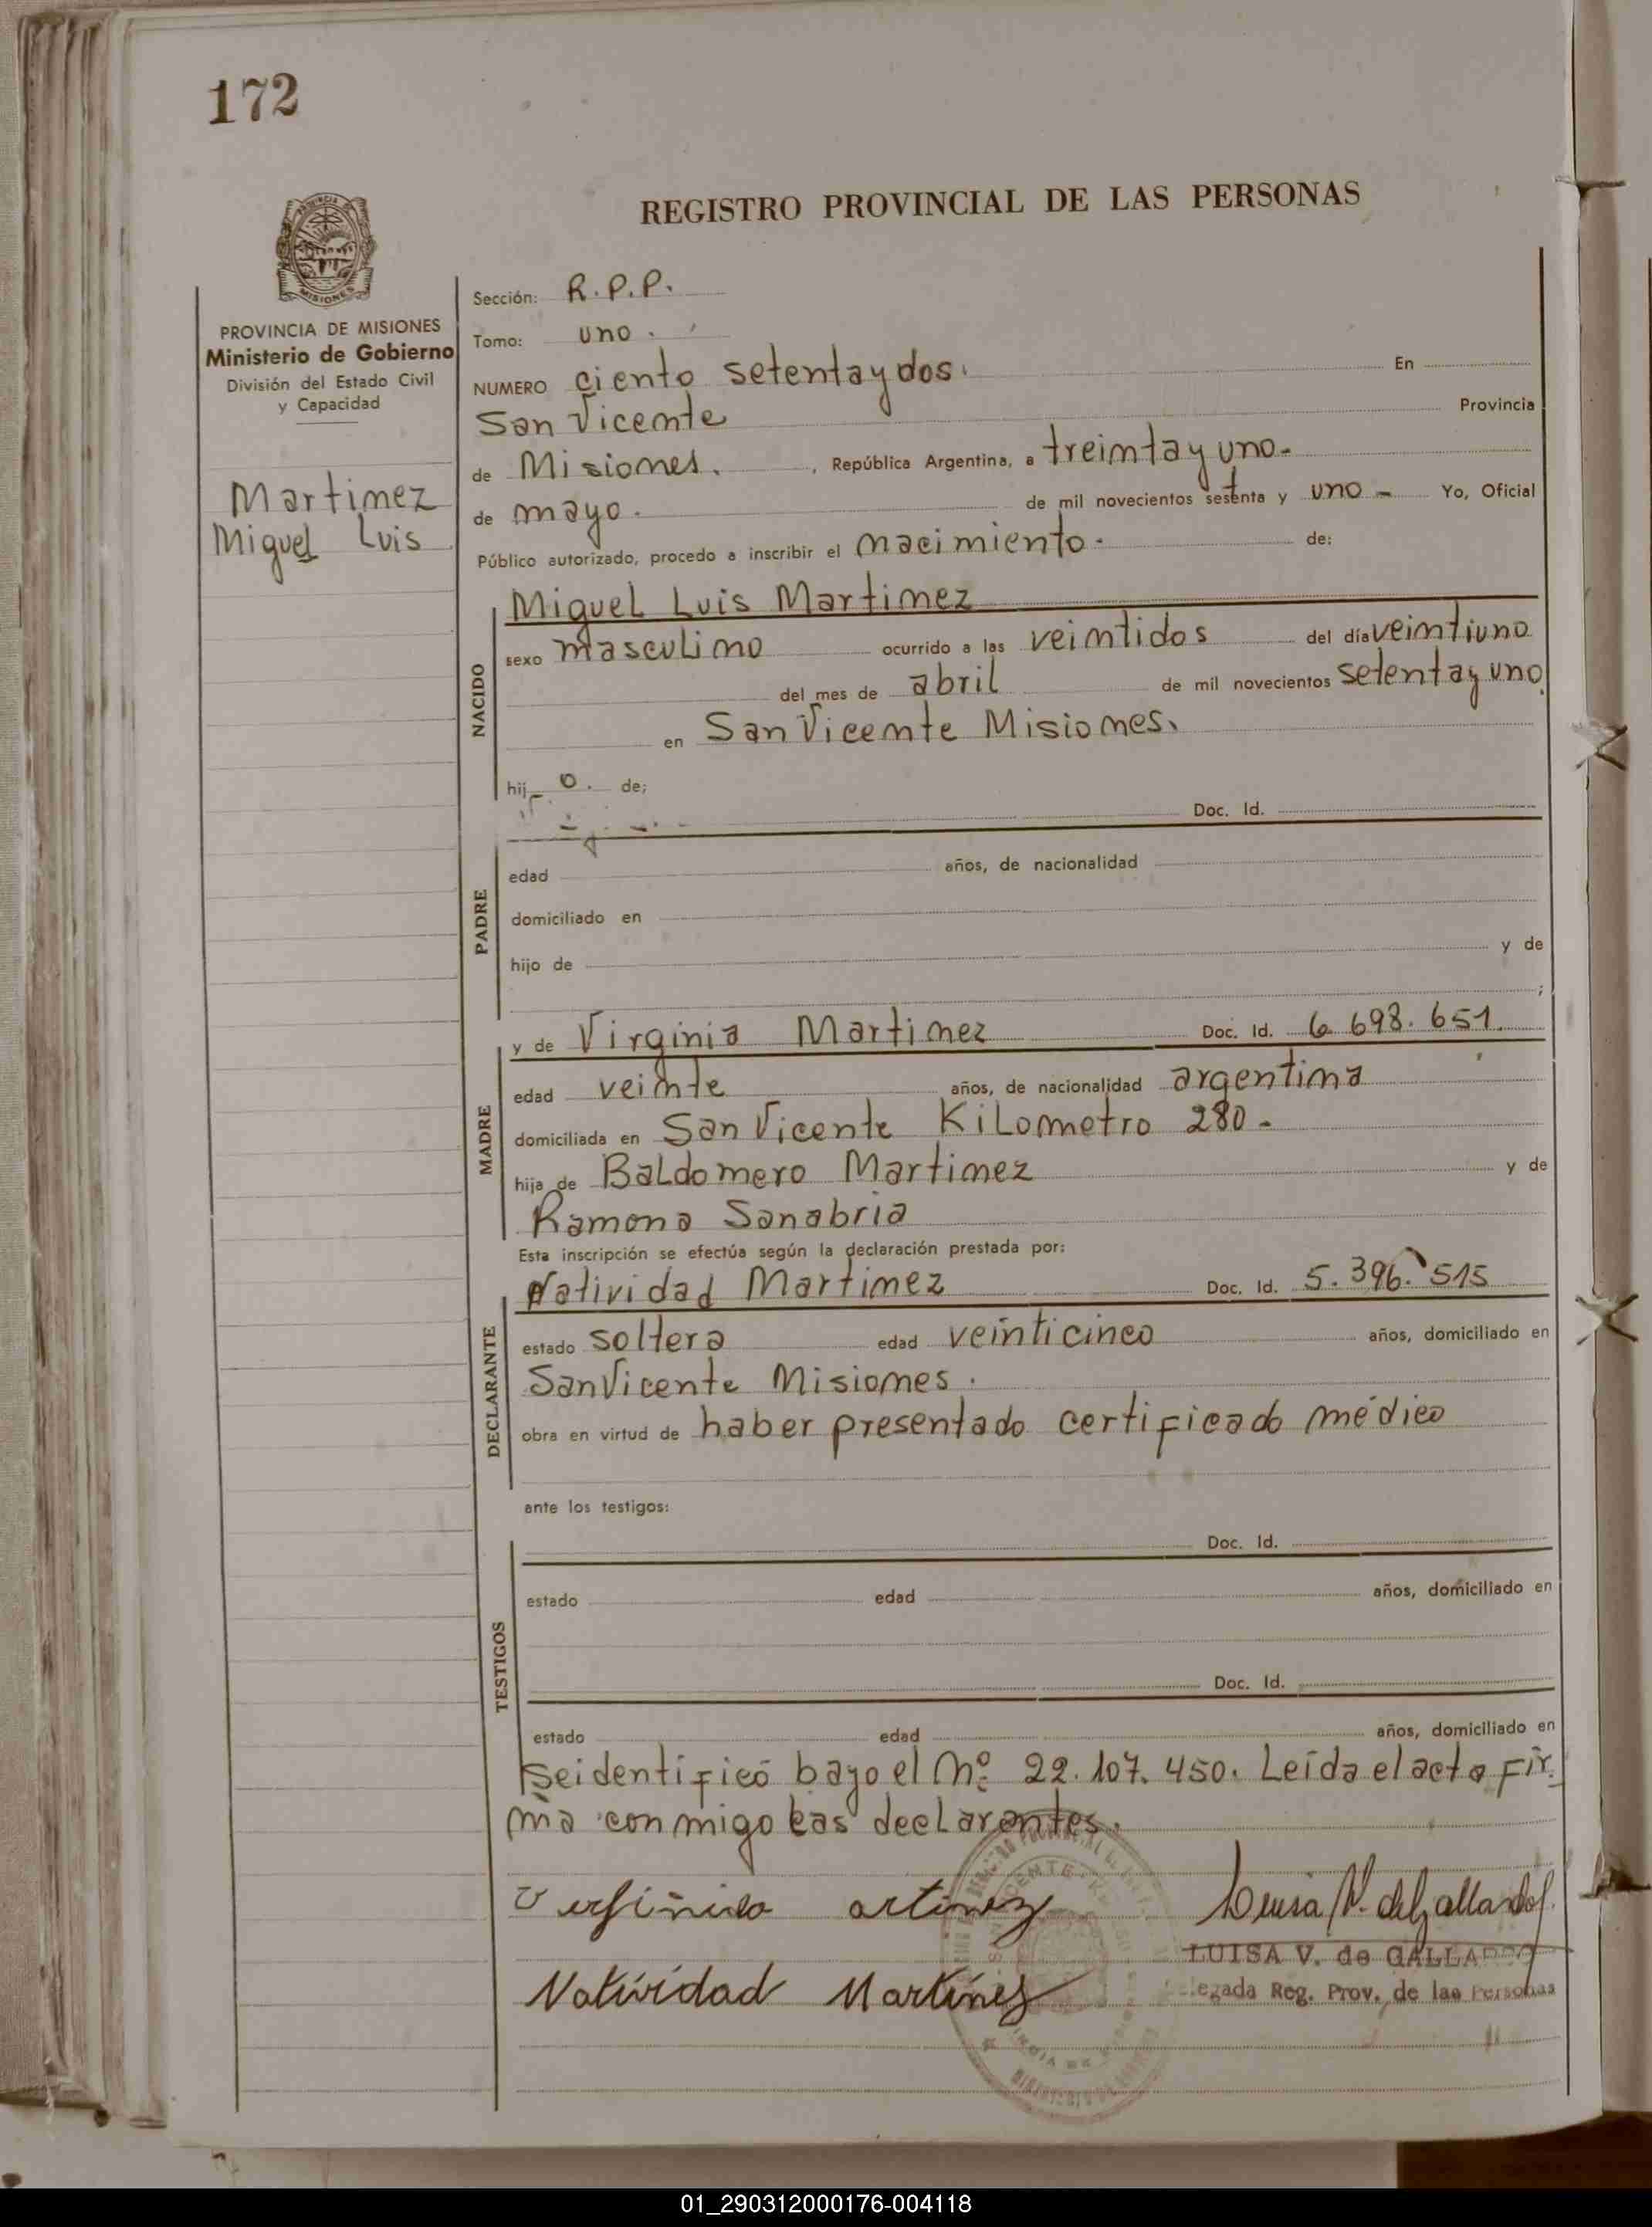 172
REGISTRO PROVINCIAL DE LAS PERSONAS
MISIONES
PROVINCIA DE MISIONES
Ministerio de Gobierno
División del Estado Civil
y Capacidad
Martinez
Miguel Luis
Sección: R.P.P.
Tomo: uno.
NUMERO ciento setenta y dos. En
San Vicente Provincia
de Misiones. , República Argentina, a treinta y uno-
de mayo. de mil novecientos sesenta y uno - Yo, Oficial
Público autorizado, procedo a inscribir el nacimiento- de:
NACIDO
Miguel Luis Martinez
sexo masculino ocurrido a las veintidos del día veintiuno
del mes de abril de mil novecientos setenta y uno.
en San Vicente Misiones.
hij o. de;
Doc. Id.
PADRE
edad años, de nacionalidad
domiciliado en
hijo de y de
;
MADRE
y de Virginia Martinez Doc. Id. 6.698.651.
edad veinte años, de nacionalidad argentina
domiciliada en San Vicente Kilometro 280-
hija de Baldomero Martinez y de
Ramona Sanabria
Esta inscripción se efectúa según la declaración prestada por:
DECLARANTE
Natividad Martinez Doc. Id. 5.396.515
estado soltera edad veinticinco años, domiciliado en
San Vicente Misiones.
obra en virtud de haber presentado certificado médico
ante los testigos:
TESTIGOS
Doc. Id.
estado edad años, domiciliado en
Doc. Id.
estado edad años, domiciliado en
Se identificó bayo el Nº 22.107.450. Leída el acta fir-
ma conmigo las declarantes.
Virginia artinez
Luisa V. de Gallardo
LUISA V. de GALLARDO
Natividad Martínez
legada Reg. Prov. de las Personas
01_290312000176-004118